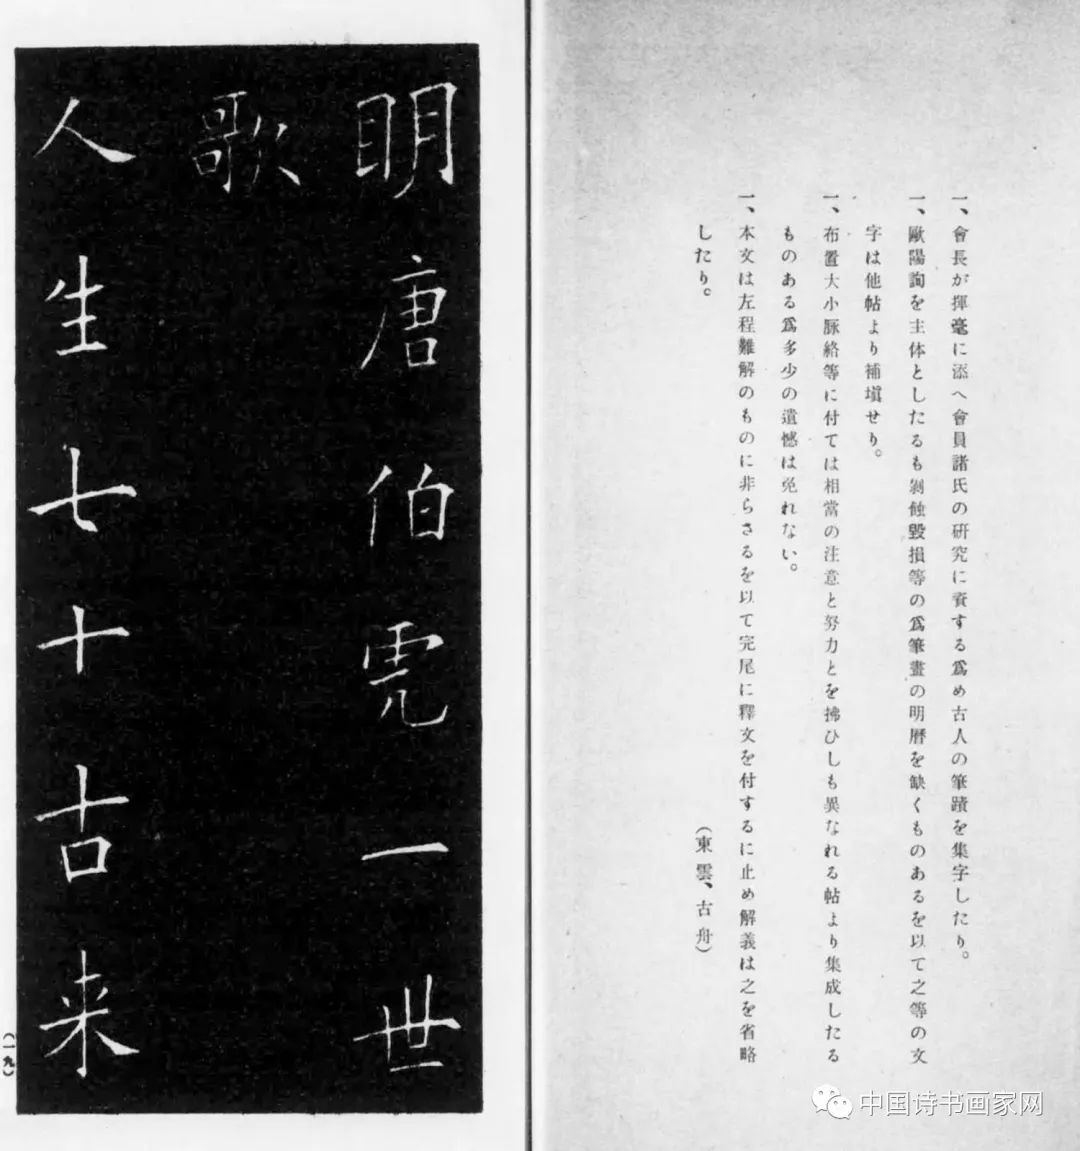 一、會長が揮毫に添へ會員諸氏の硏究に資する爲め古人の筆蹟を集字したり。
一、歐陽詢を主体としたるも剝蝕毀損等の爲筆畫の明曆を缺くものあるを以て之等の文
字は他帖より補塡せり。
一、布置大小脈絡等に付ては相當の注意と努力とを拂ひしも異なれる帖より集成したる
ものある爲多少の遺憾は免れない。
一、本文は左程難解のものに非らさるを以て完尾に釋文を付するに止め解義は之を省略
したり。
(東雲、古舟)
明唐伯虎一世
歌
人生七十古来
(一九)
中国诗书画家网